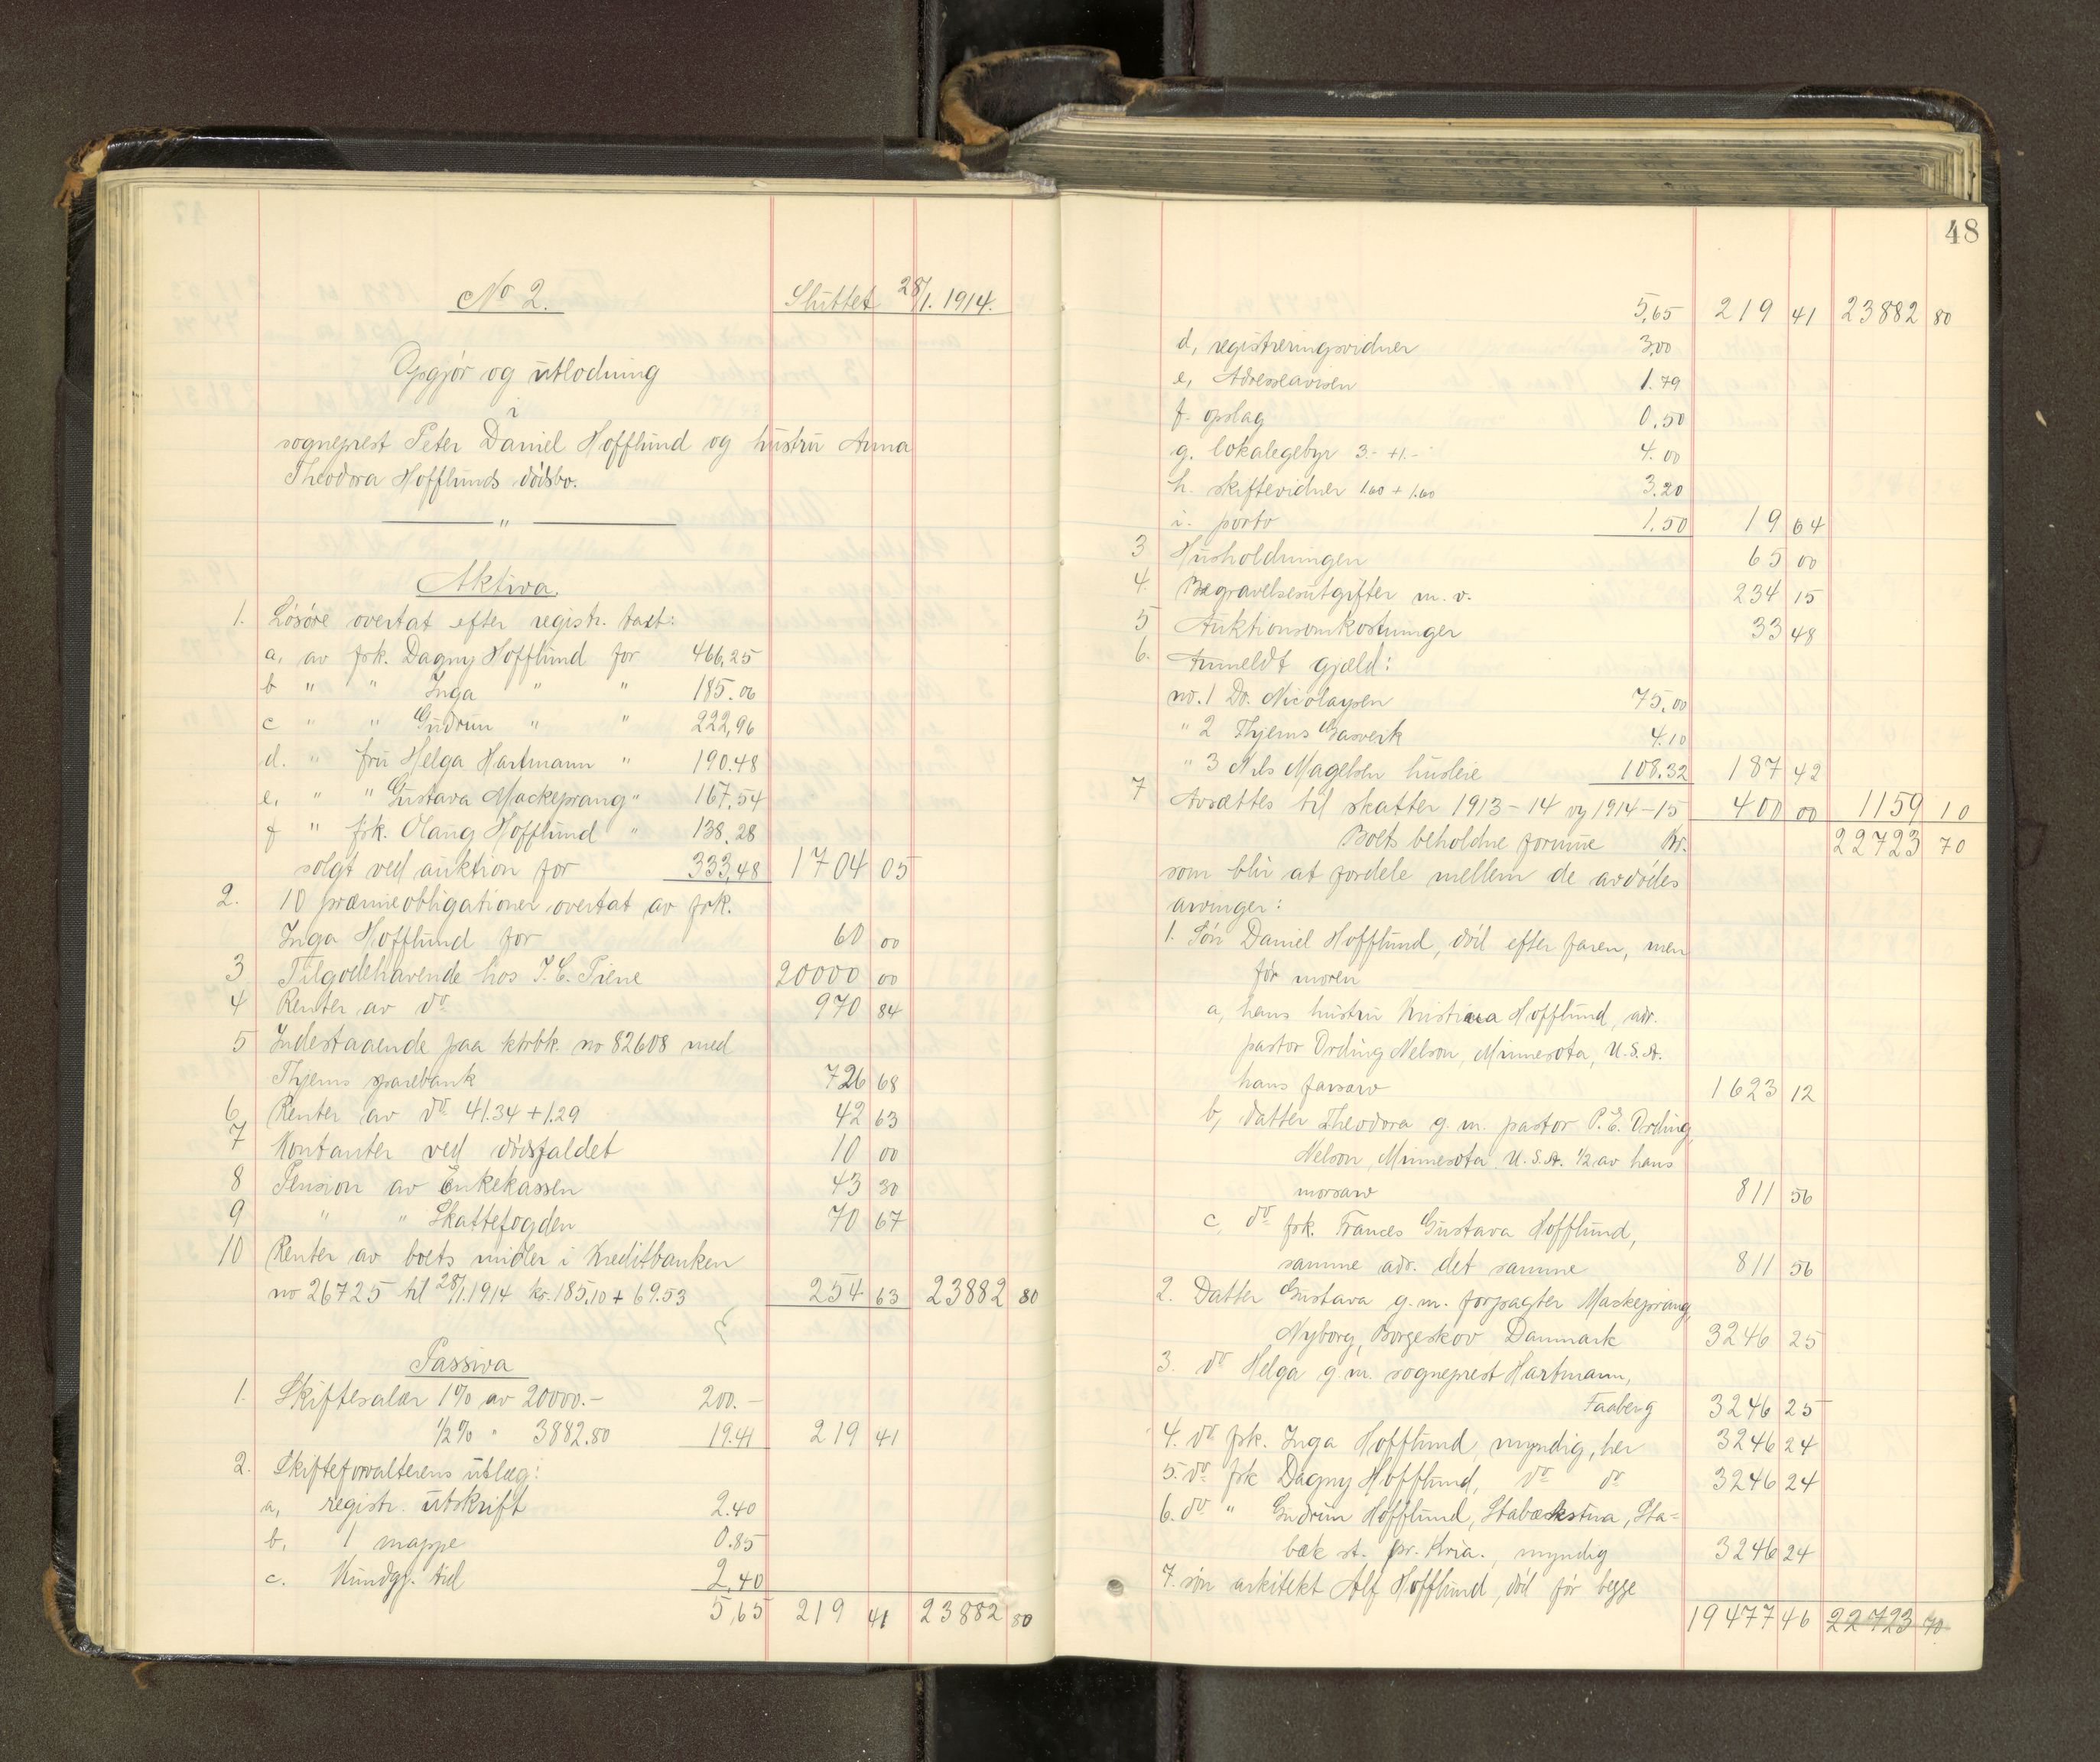 No 2. Sluttet 28/1. 1914.
Opgjør og utlodning
i
sogneprest Peter Daniel Hofflund og hustru Anna
Theodora Hofflunds dødsbo.
"
Aktiva.
1. Løsøre overtat efter registr. takst:
a, av frk. Dagny Hofflund for 466,25
b " " Inga " " 185.06
c " " Gudrun " " 222,96
d. " fru Helga Hartmann " 190.48
e, " " Gustava Mackeprang " 167,54
f " frk. Olaug Hofflund " 138,28
solgt ved auktion for 333,48 1704 05
2. 10 præmieobligationer overtat av frk.
Inga Hofflund for 60 00
3 Tilgodehavende hos I. C. Piene 20000 00
4 Renter av do 970 84
5 Indestaaende paa ktrbk. no 82608 med
Thjems sparebank 726 68
6 Renter av do 41.34 + 1.29 42 63
7 Kontanter ved dødsfaldet 10 00
8 Pension av Enkekassen 43 30
9 " " Skattefogden 70 67
10 Renter av boets midler i Kreditbanken
no 26725 til 28/1.1914 kr. 185,10 + 69.53 254 63 23882 80
Passiva
1. Skiftesalær 1% av 20000.- 200.-
1/2% " 3882.80 19.41 219 41
2. Skifteforvalterens utlæg:
a, registr. utskrift 2.40
b, 1 mappe 0.85
c. Kundgj. tid 2,40
5,65 219 41 23882 80
48
5,65 219 41 23882 80
d, registreringsvidner 3,00
e, Adresseavisen 1.79
f. opslag 0,50
g. lokalegebyr 3.- + 1.- 4.00
h. skiftevidner 1.60 + 1.60 3.20
i. porto 1,50 19 64
3 Husholdningen 65 00
4. Begravelsesutgifter m. v. 234 15
5 Auktionsomkostninger 33 48
6. Anmeldt gjæld:
no. 1 Dr. Nicolaysen 75,00
" 2 Thjems Gasverk 4.10
" 3 Nils Magelssen husleie 108.32 187 42
7 Avsættes til skatter 1913-14 og 1914-15 400 00 1159 10
Boets beholdne formue Kr. 22723 70
som blir at fordele mellem de avdødes
arvinger:
1. Søn Daniel Hofflund, død efter faren, men
før moren
a, hans hustru Kristina Hofflund, adr.
pastor Ording Nelson, Minnesota, U.S.A.
hans farsarv 1623 12
b, datter Theodora g. m. pastor P. E. Ording,
Nelson, Minnesota U.S.A. 1/2 av hans
morsarv 811 56
c, do frk. Frances Gustava Hofflund,
samme adr. det samme 811 56
2. Datter Gustava g. m. forpagter Mackeprang,
Nyborg, Borgeskov Danmark 3246 25
3. do Helga g. m. sogneprest Hartmann,
Faaberg 3246 25
4. do frk. Inga Hofflund, myndig, her 3246 24
5. do frk Dagny Hofflund, do do 3246 24
6. do " Gudrun Hofflund, Stabækstua, Sta=
bæk st. pr. Kria., myndig 3246 24
7. søn arkitekt Alf Hofflund, død før begge
19477 46 22723 70